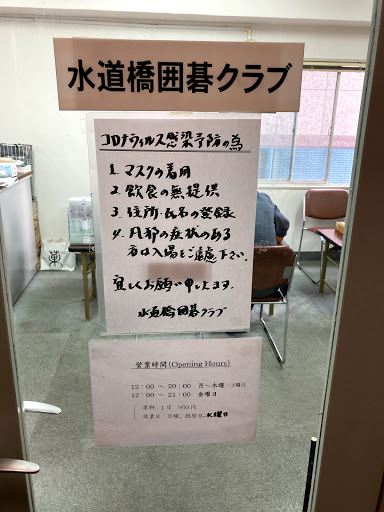 水道橋囲碁クラブ
コロナウィルス感染予防の為
1. マスクの着用
2. 飲食の無提供
3. 住所・氏名の登録
4. 風邪の症状のある
方は入場をご遠慮下さい.
宜しくお願い申します.
水道橋囲碁クラブ
営業時間(Opening Hours)
12:00 ～ 20:00 月～木曜・土曜日
12:00 ～ 21:00 金曜日
席料:1日 900円
休業日:日曜、祝祭日、水曜日